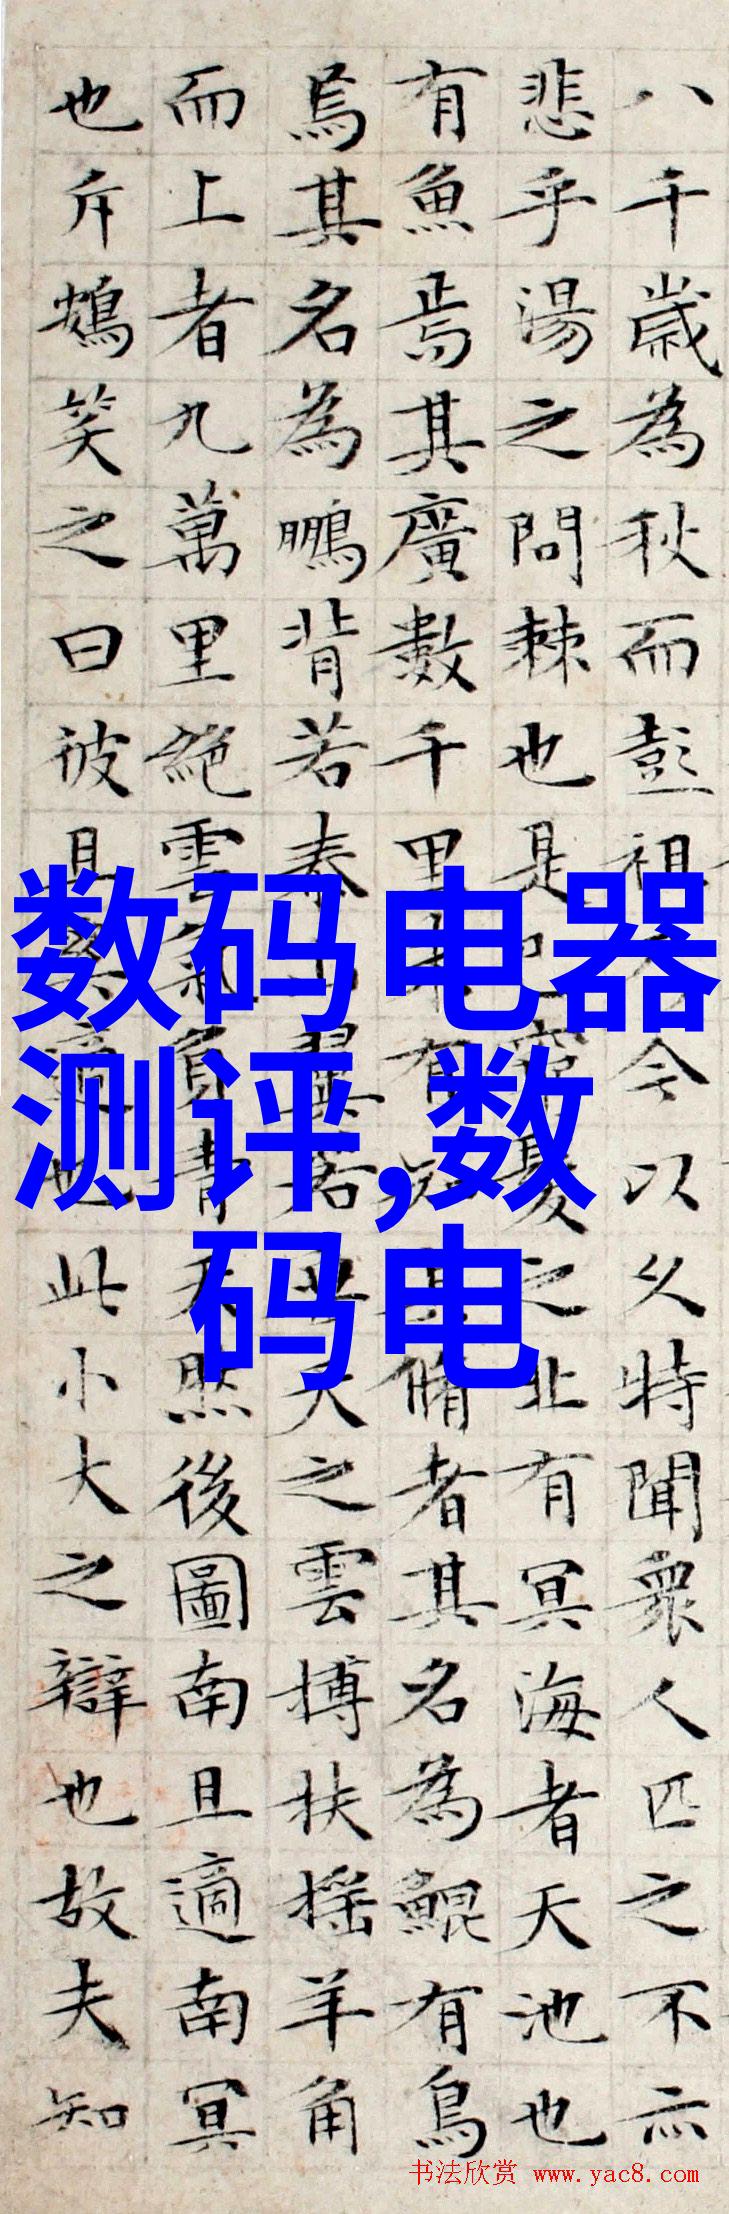 八千歲為秋而彭祖乃今以久特聞衆人匹之不亦
悲乎湯之問棘也是已窮髮之北有冥海者天池也
有魚焉其廣數千里未有知其脩者其名為鯤有鳥
焉其名為鵬背若泰山翼若垂天之雲搏扶搖羊角
而上者九萬里絕雲氣負青天然後圖南且適南冥
也斥鴳笑之曰彼且奚適也此小大之辯也故夫知
数码电器
测评,数
码电
书法欣赏 www.yac8.com